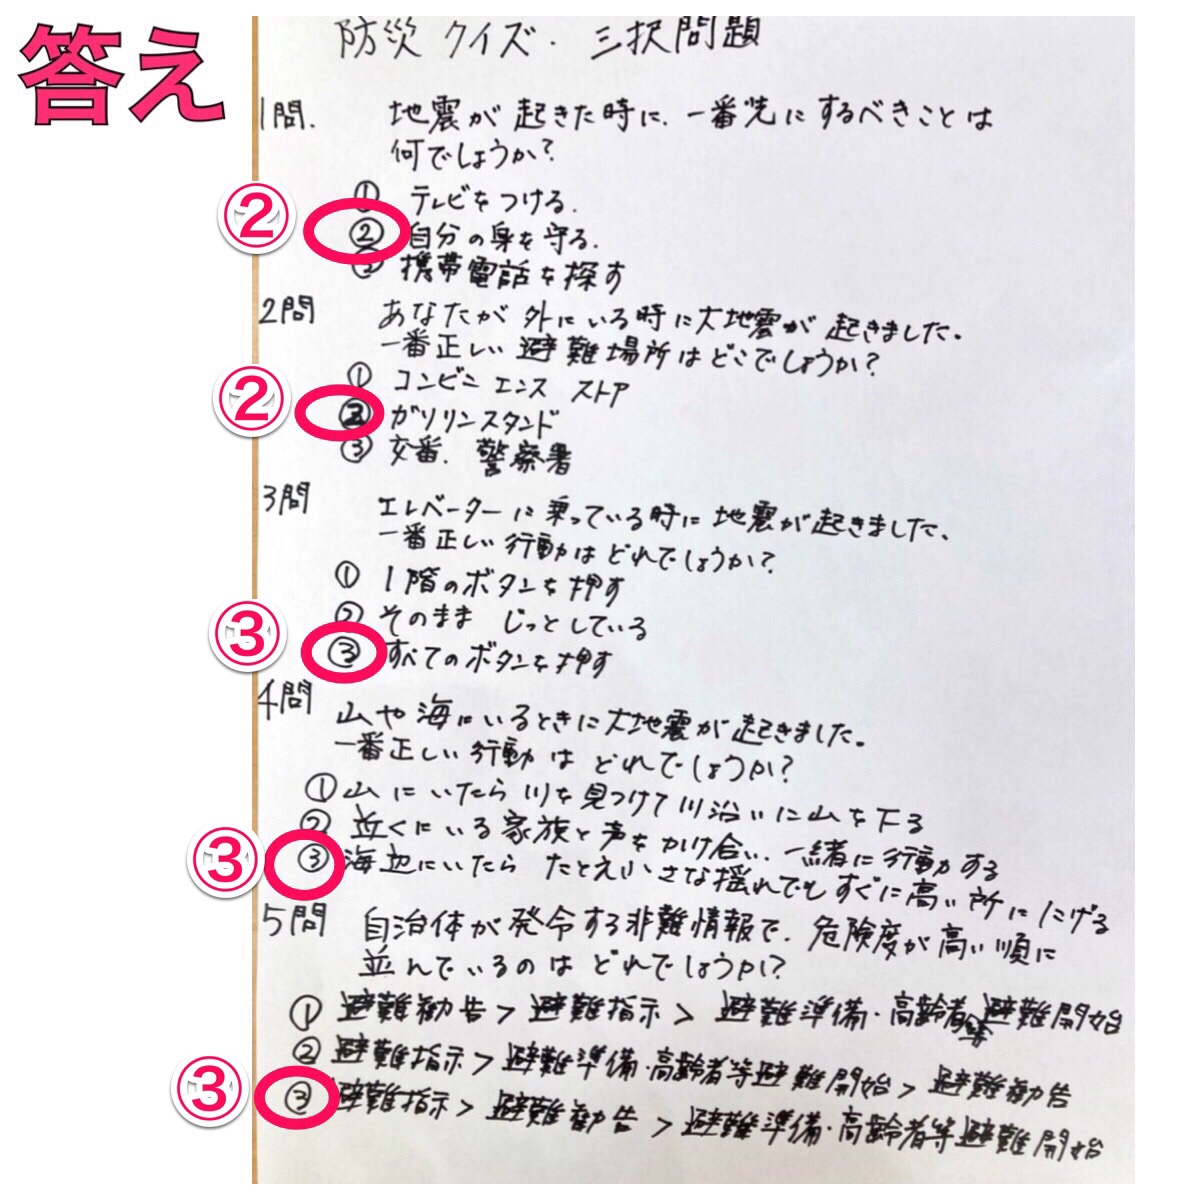 答え
防災クイズ. 三択問題
1問. 地震が起きた時に、一番先にするべきことは
何でしょうか?
① テレビをつける.
② ② 自分の身を守る.
③ 携帯電話を探す
2問 あなたが外にいる時に大地震が起きました。
一番正しい避難場所はどこでしょうか?
① コンビニエンスストア
② ② ガソリンスタンド
③ 交番. 警察署
3問 エレベーターに乗っている時に地震が起きました、
一番正しい行動はどれでしょうか?
① 1階のボタンを押す
② そのままじっとしている
③ ③ すべてのボタンを押す
4問 山や海にいるときに大地震が起きました。
一番正しい行動はどれでしょうか?
① 山にいたら川を見つけて川沿いに山を下る
② 近くにいる家族と声をかけ合い、一緒に行動する
③ ③ 海辺にいたらたとえ小さな揺れでもすぐに高い所ににげる
5問 自治体が発令する非難情報で、危険度が高い順に
並んでいるのはどれでしょうか?
① 避難勧告>避難指示>避難準備・高齢者等避難開始
② 避難指示>避難準備・高齢者等避難開始>避難勧告
③ ③ 避難指示>避難勧告>避難準備・高齢者等避難開始